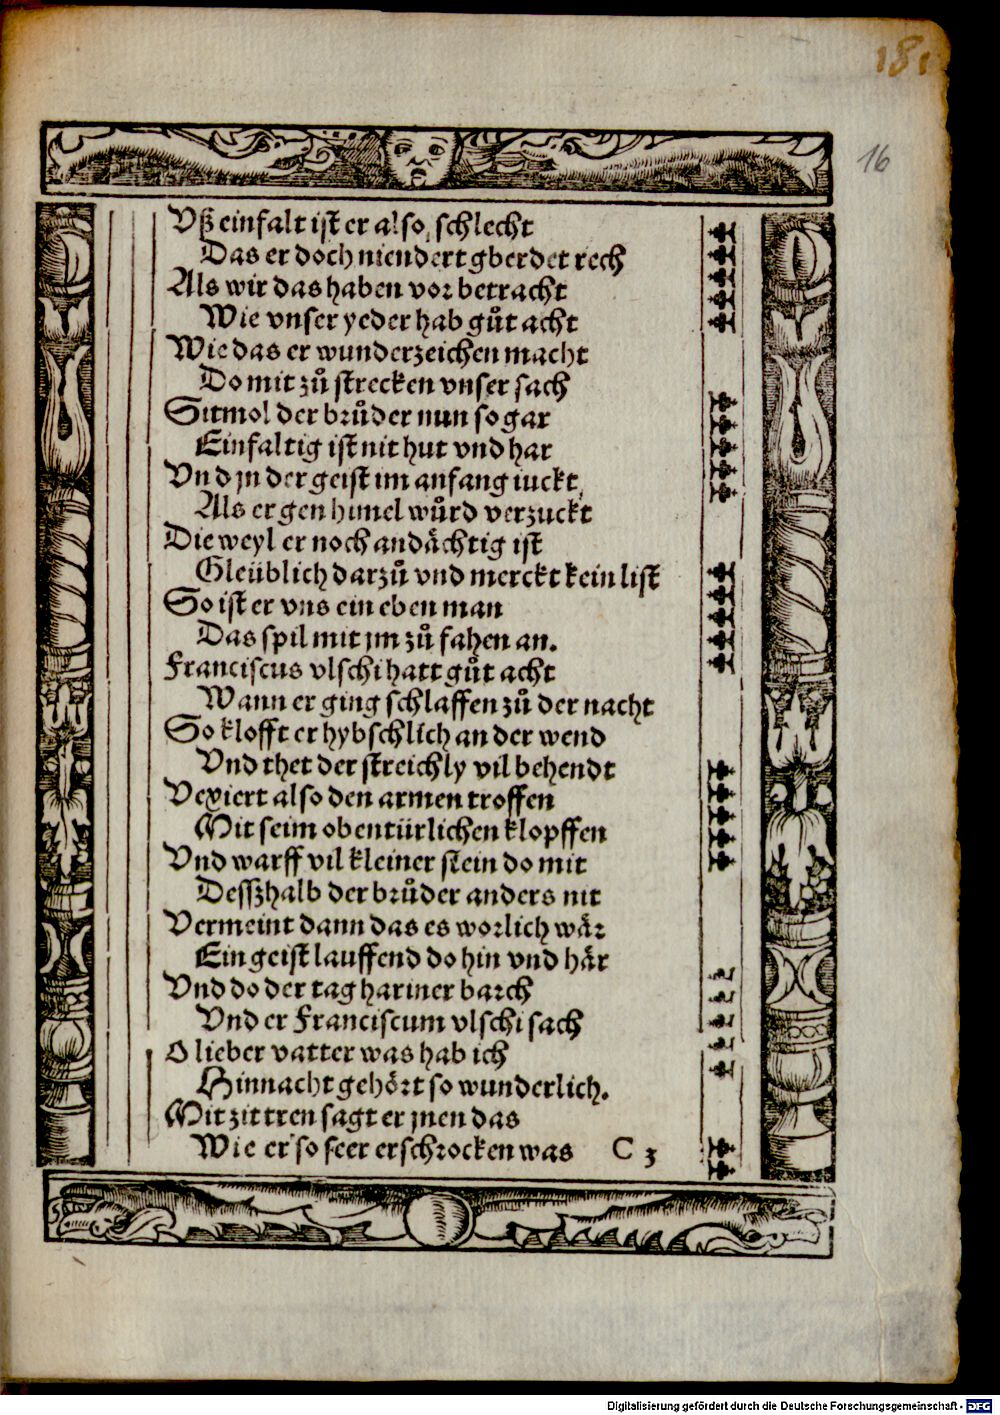 181
16
Vß einfalt ist er also schlecht
Das er doch niendert gberdet rech
Als wir das haben vor betracht
Wie vnser yeder hab gůt acht
Wie das er wunderzeichen macht
Do mit zů strecken vnser sach
Sitmol der brůder nun so gar
Einfaltig ist nit hut vnd har
Vnd jn der geist im anfang iuckt,
Als er gen himel wůrd verzuckt
Die weyl er noch andächtig ist
Gleüblich darzů vnd merckt kein list
So ist er vns ein eben man
Das spil mit jm zů fahen an.
Franciscus vlschi hatt gůt acht
Wann er ging schlaffen zů der nacht
So klofft er hybschlich an der wend
Vnd thet der streichly vil behendt
Vexiert also den armen troffen
Mit seim obentürlichen klopffen
Vnd warff vil kleiner stein do mit
Desszhalb der brůder anders nit
Vermeint dann das es worlich wär
Ein geist lauffend do hin vnd här
Vnd do der tag hariner barch
Vnd er Franciscum vlschi sach
O lieber vatter was hab ich
Hinnacht gehört so wunderlich.
Mit zittren sagt er jnen das
Wie er so seer erschrocken was C 3
Digitalisierung gefördert durch die Deutsche Forschungsgemeinschaft - DFG